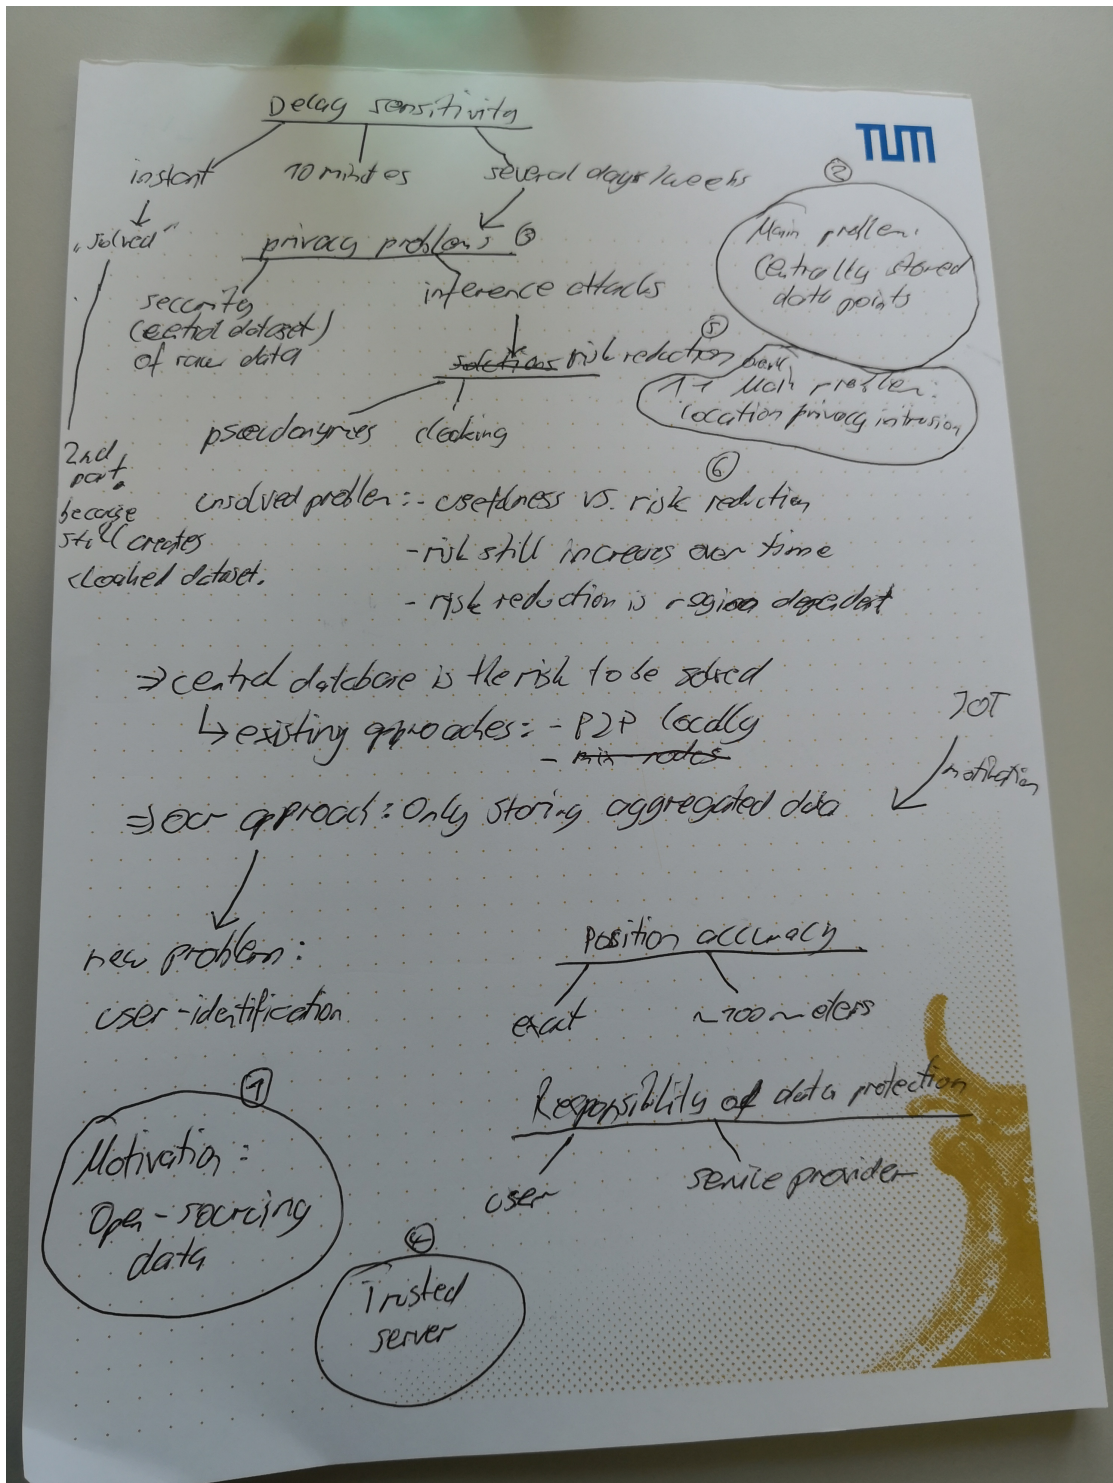 Delay sensitivity
TUM
instant 10 minutes several days/weeks
②
"solved" privacy problems ③
Main problem:
Centrally stored
data points
security
(central dataset)
of raw data
inference attacks
⑤
solutions risk reduction
1+ Main problem:
location privacy intrusion
pseudonymes cloaking
2nd
part,
because
still creates
cloaked dataset.
⑥
unsolved problem: - usefulness vs. risk reduction
- risk still increases over time
- risk reduction is region dependent
⇒ central database is the risk to be solved
↳ existing approaches: - P2P locally
- mix-nodes
IOT
motivation
⇒ our approach: Only storing aggregated data
new problem:
user-identification
Position accuracy
exact ~100 meters
Responsiblity of data protection
user service provider
①
Motivation:
Open-sourcing
data
④
Trusted
server